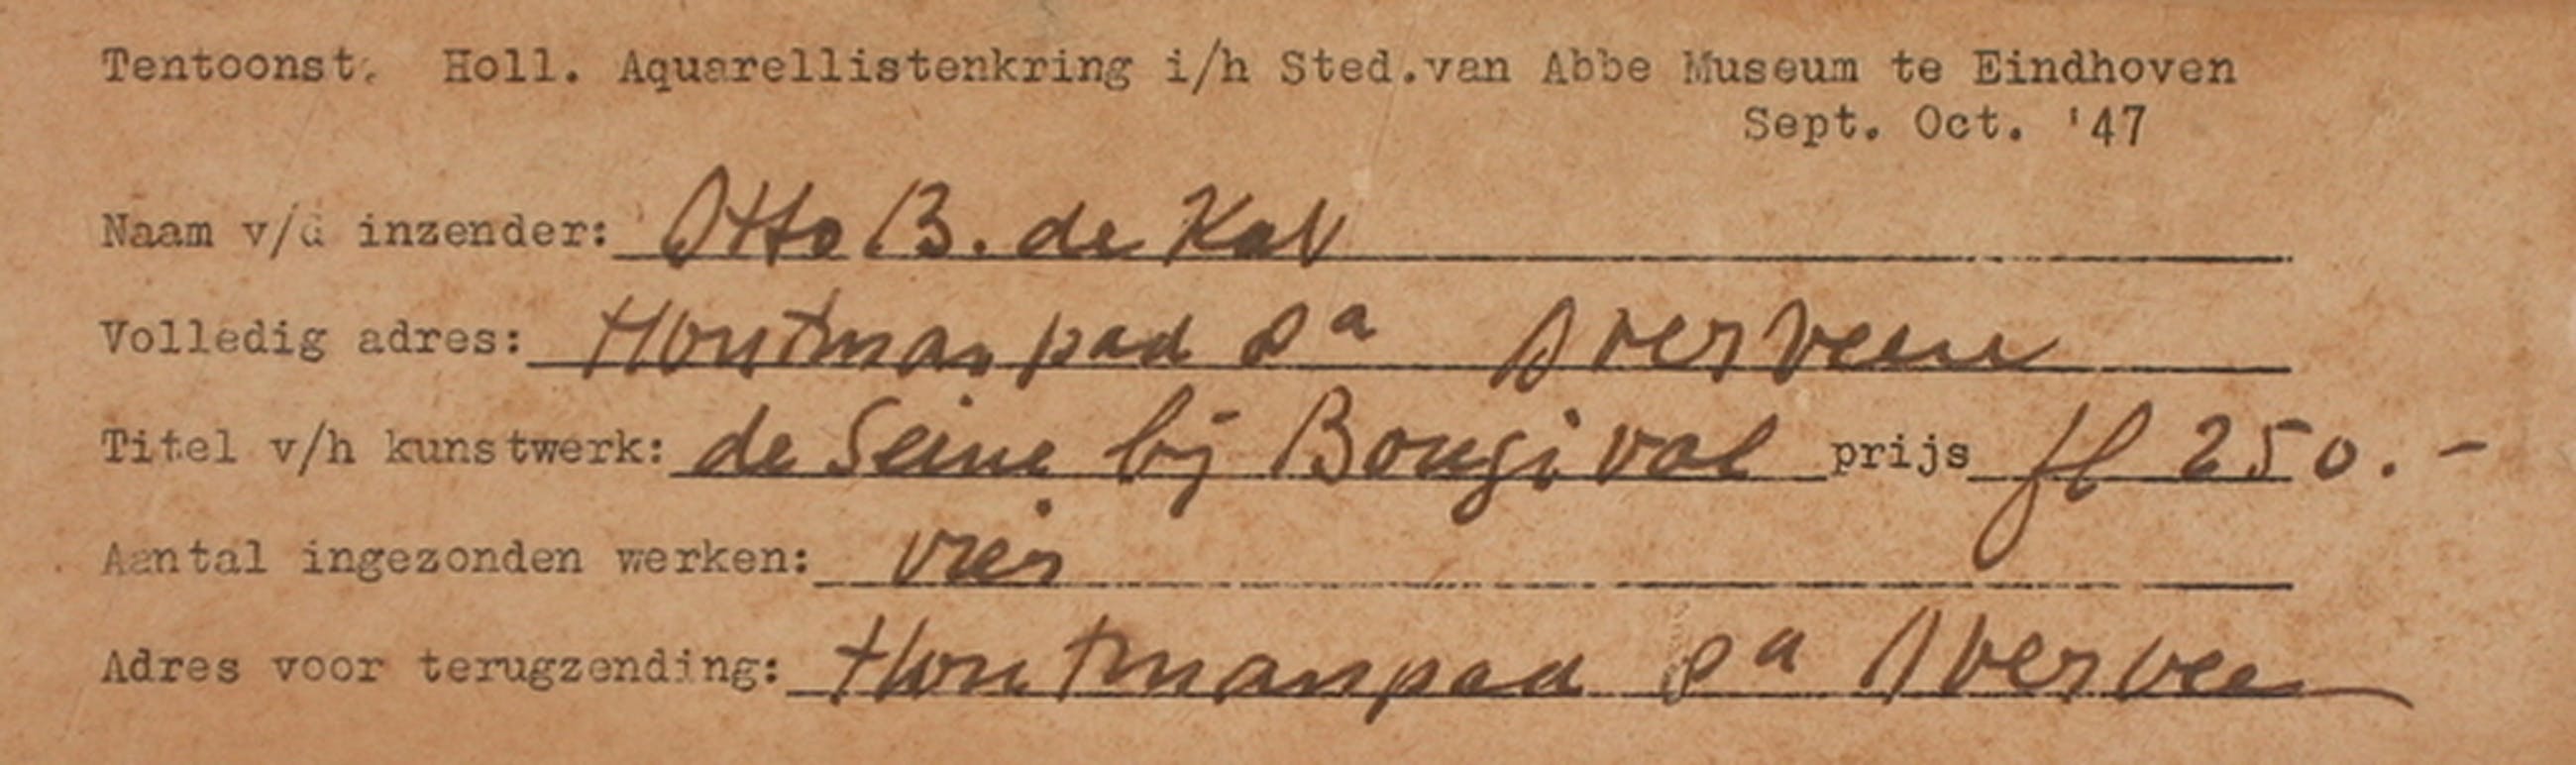 Tentoonst. Holl. Aquarellistenkring i/h Sted.van Abbe Museum te Eindhoven
Sept. Oct. '47
Naam v/d inzender: Otto B. de Kat
Volledig adres: Houtmanpad 8a Overveen
Titel v/h kunstwerk: de Seine bij Bougival prijs fl 250.-
Aantal ingezonden werken: vier
Adres voor terugzending: Houtmanpad 8a Overveen